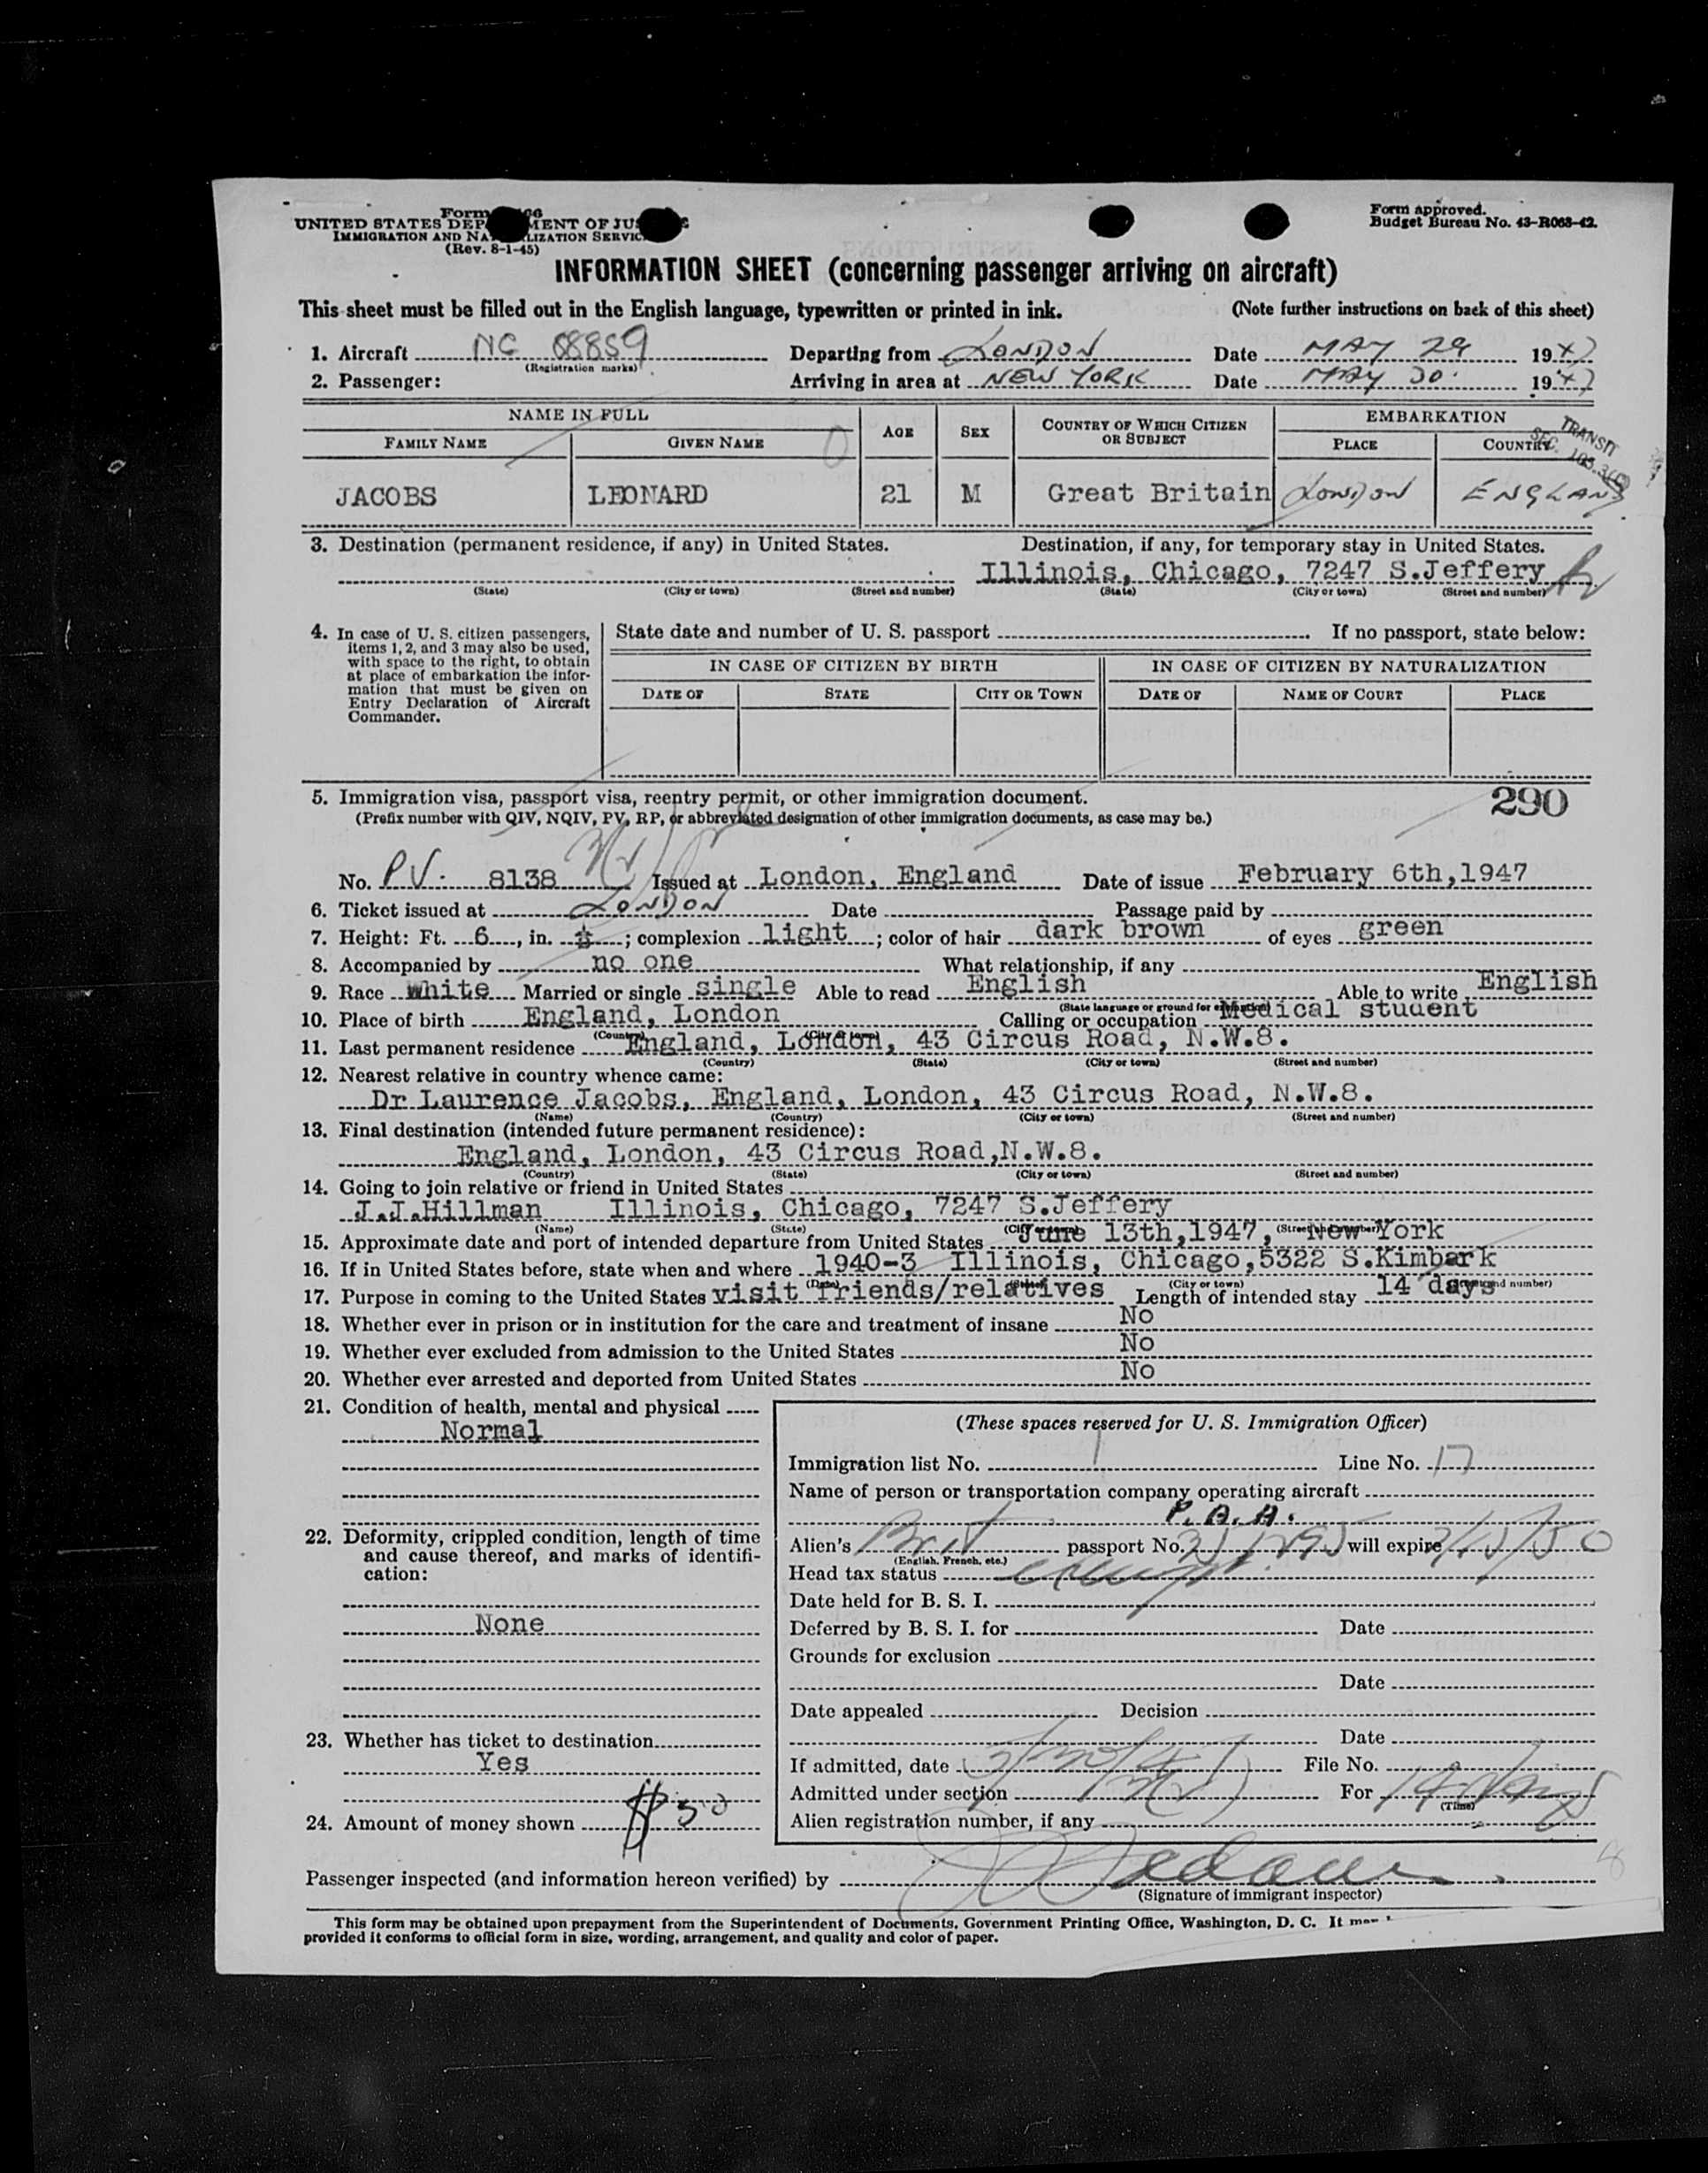 Form
UNITED STATES DEP MENT OF JUS
IMMIGRATION AND NA LIZATION SERVIC
(Rev. 8-1-45)
Form approved.
Budget Bureau No. 43-R068-42.
INFORMATION SHEET (concerning passenger arriving on aircraft)
This sheet must be filled out in the English language, typewritten or printed in ink. (Note further instructions on back of this sheet)
1. Aircraft NC 88859 Departing from LONDON Date MAY 29 1947
(Registration marks)
2. Passenger: Arriving in area at NEW YORK Date MAY 30 1947
NAME IN FULL AGE SEX COUNTRY OF WHICH CITIZEN OR SUBJECT EMBARKATION
FAMILY NAME GIVEN NAME PLACE COUNTRY
TRANSIT
SEC.
JACOBS LEONARD 21 M Great Britain LONDON ENGLAND
3. Destination (permanent residence, if any) in United States. Destination, if any, for temporary stay in United States.
Illinois, Chicago, 7247 S.Jeffery
(State) (City or town) (Street and number) (State) (City or town) (Street and number)
4. In case of U. S. citizen passengers, items 1, 2, and 3 may also be used, with space to the right, to obtain at place of embarkation the information that must be given on Entry Declaration of Aircraft Commander.
State date and number of U. S. passport If no passport, state below:
IN CASE OF CITIZEN BY BIRTH IN CASE OF CITIZEN BY NATURALIZATION
DATE OF STATE CITY OR TOWN DATE OF NAME OF COURT PLACE
5. Immigration visa, passport visa, reentry permit, or other immigration document. 290
(Prefix number with QIV, NQIV, PV, RP, or abbreviated designation of other immigration documents, as case may be.)
No. PV. 8138 Issued at London, England Date of issue February 6th,1947
6. Ticket issued at LONDON Date Passage paid by
7. Height: Ft. 6, in. ; complexion light; color of hair dark brown of eyes green
8. Accompanied by no one What relationship, if any
9. Race white Married or single single Able to read English Able to write English
(State language or ground for exemption)
10. Place of birth England, London Calling or occupation Medical student
(Country) (City or town)
11. Last permanent residence England, London, 43 Circus Road, N.W.8.
(Country) (State) (City or town) (Street and number)
12. Nearest relative in country whence came:
Dr Laurence Jacobs, England, London, 43 Circus Road, N.W.8.
(Name) (Country) (City or town) (Street and number)
13. Final destination (intended future permanent residence):
England, London, 43 Circus Road,N.W.8.
(Country) (State) (City or town) (Street and number)
14. Going to join relative or friend in United States
J.J.Hillman Illinois, Chicago, 7247 S.Jeffery
(Name) (State) (City or town) (Street and number)
15. Approximate date and port of intended departure from United States June 13th,1947, New York
16. If in United States before, state when and where 1940-3 Illinois, Chicago,5322 S.Kimbark
(Date) (State) (City or town) (Street and number)
17. Purpose in coming to the United States visit friends/relatives Length of intended stay 14 days
18. Whether ever in prison or in institution for the care and treatment of insane No
19. Whether ever excluded from admission to the United States No
20. Whether ever arrested and deported from United States No
21. Condition of health, mental and physical
Normal
22. Deformity, crippled condition, length of time and cause thereof, and marks of identification:
None
23. Whether has ticket to destination
Yes
24. Amount of money shown $50
(These spaces reserved for U. S. Immigration Officer)
Immigration list No. 1 Line No. 17
Name of person or transportation company operating aircraft
P.A.A.
Alien's Brit passport No. will expire
(English, French, etc.)
Head tax status exempt
Date held for B. S. I.
Deferred by B. S. I. for Date
Grounds for exclusion
Date
Date appealed Decision
Date
If admitted, date 5/30/47 File No.
Admitted under section 3(2) For 14 days
(Time)
Alien registration number, if any
Passenger inspected (and information hereon verified) by
(Signature of immigrant inspector)
This form may be obtained upon prepayment from the Superintendent of Documents, Government Printing Office, Washington, D. C. It
provided it conforms to official form in size, wording, arrangement, and quality and color of paper.